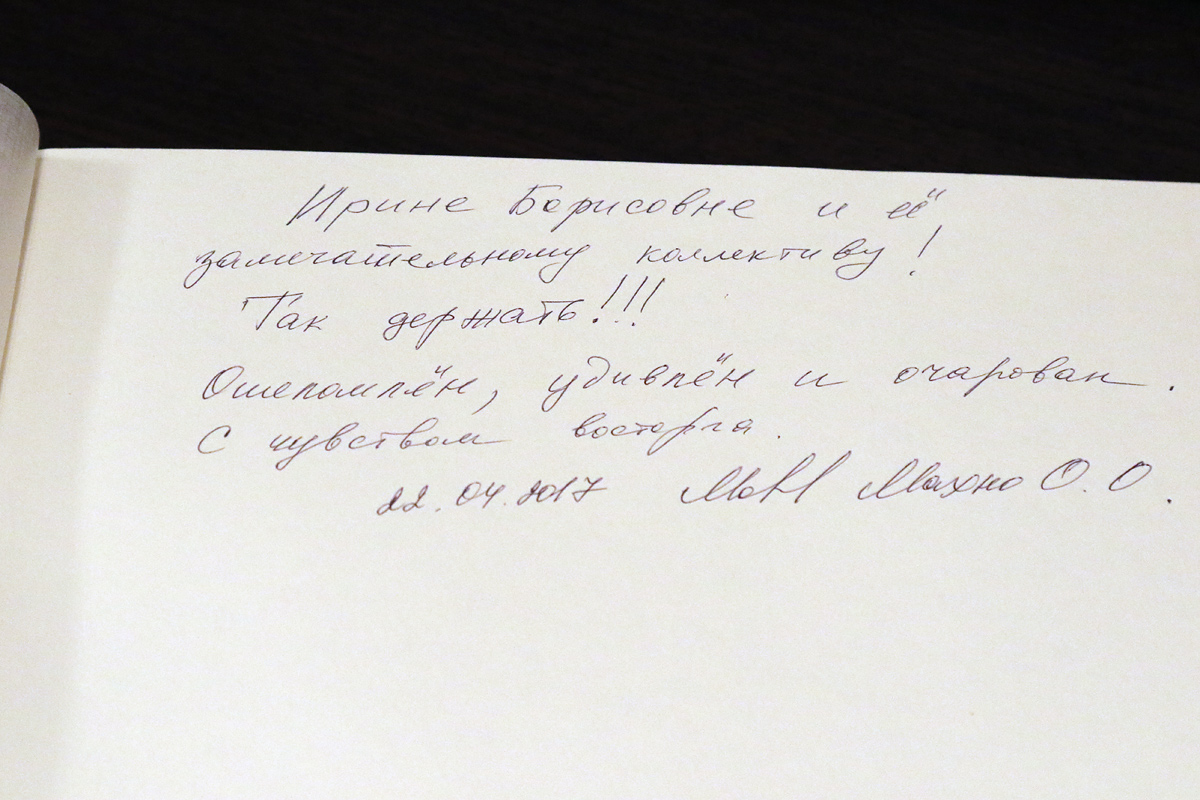 Ирине Борисовне и её
замечательному коллективу!
Так держать!!!
Ошеломлён, удивлён и очарован.
С чувством восторга.
22.04.2017 Махно О.О.